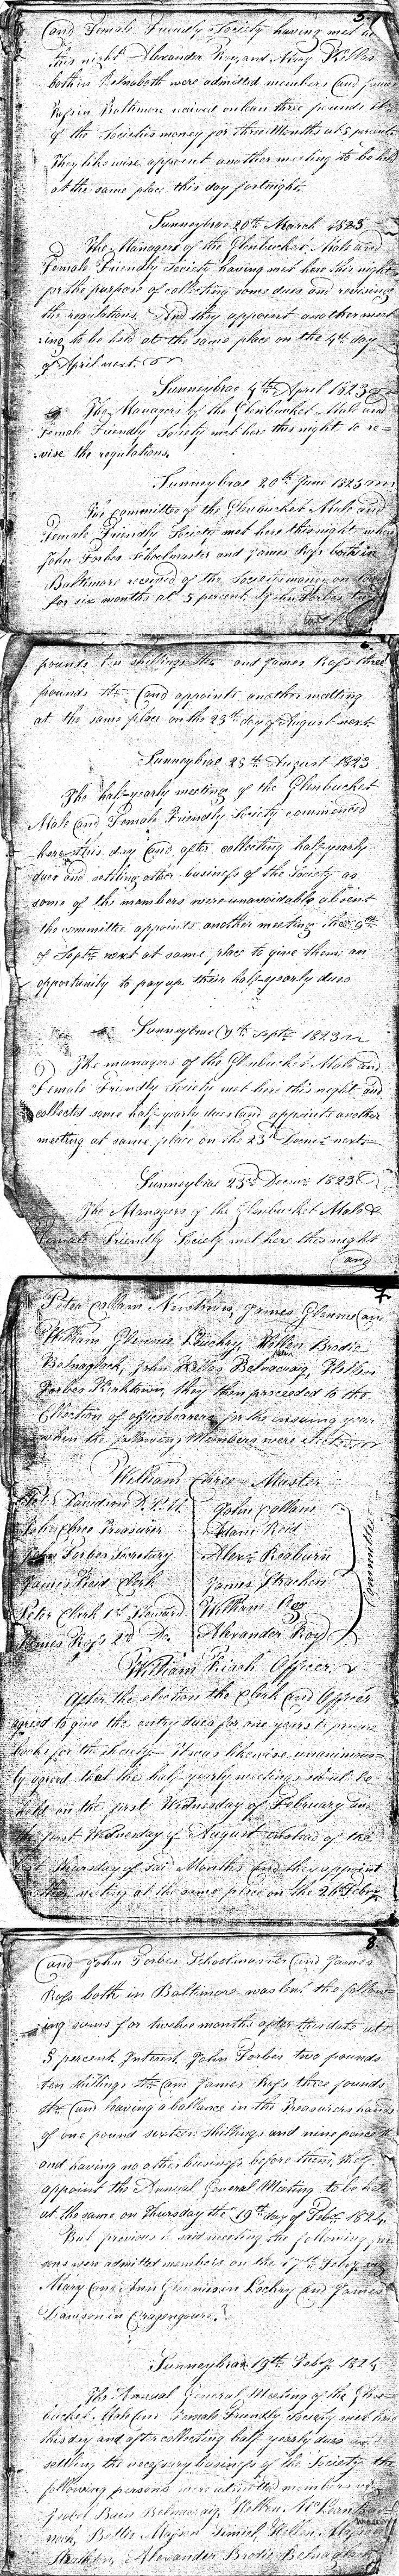 5.
and Female Friendly Society having met h
this night Alexander Roy and Mary Kellas
both in Belnaboth were admitted members and James
Ross in Baltimore received on loan three pounds St
of the Societies money for three Months at 5 percent
They likewise appoint another meeting to be held
at the same place this day fortnight.
Sunneybrae 20th March 1823
The Managers of the Glenbucket Male and
Female Friendly Society having met here this night
for the purpose of collecting some dues and revising
the regulations. And they appoint another meet
:ing to be held at the same place on the 4th day
of April next.
Sunneybrae 4th April 1823
The Managers of the Glenbucket Male and
Female Friendly Society met here this night to re=
:vise the regulations.
Sunneybrae 20th June 1823
The committee of the Glenbucket Male and
Female Friendly Society met here this night when
John Forbes Schoolmaster and James Ross both in
Baltimore received of the Societies money on loan
for six months at 5 percent. John Forbes two
two
6.
pounds ten shillings Str and James Ross three
pounds Str and appoints another meeting
at the same place on the 23th day of August next.
Sunneybrae 23th August 1823
The half-yearly meeting of the Glenbucket
Male and Female Friendly Society commenced
here this day and after collecting half-yearly
dues and settling other business of the Society as
some of the members were unavoidably absent
the committee appoints another meeting the 9th
of Septr next at same place to give them an
opportunity to pay up their half-yearly dues
Sunneybrae 9th Septr 1823
The managers of the Glenbucket Male and
Female Friendly Society met here this night and
collected some half-yearly dues and appoints another
meeting at same place on the 23d Decemr next
Sunneybrae 23d Decemr 1823
The Managers of the Glenbucket Male &
Female Friendly Society met here this night
and
7
Peter Callam Newtown, James Glennie and
William Glennie Hellen Brodie
Belnaglack, John Kellas Belnacraig, Hellen
Forbes Kirktown, they then proceeded to the
Ellection of officebearers for the ensuing year
when the following Members were elected
William Chree Master
Davidson D.P.M. John Callam
John Chree Treasurer Adam Reid
John Forbes Secretary Alexr Reaburn
James Reid Clerk James Strachen
Peter Clerk 1st Steward William Gog
James Ross 2d Do. Alexander Roy
Committee
William Riach Officer
After the election the Clerk and Officer
agreed to give the entry dues for one years to
books for the Society. It was likewise unanimous=
ly agreed that the half-yearly meetings should be
held on the first Wednesday of February and
the first Wednesday of August instead of the
Thursday of said Months and they appoint
another meeting at the same place on the 26th Febry
8.
and John Forbes Schoolmaster and James
Ross both in Baltimore was lent the follow=
:ing sums for twelve months after this date at
5 percent Interest, John Forbes two pounds
ten shillings Str and James Ross three pounds
Str and leaving a ballance in the Treasurers hands
of one pound sixteen shillings and nine pence
and having no other business before them, they
appoint the Annual General Meeting to be held
at the same on Thursday the 19th day of Febry 1824
But previous to said meeting the following per
sons were admitted members on the 17th Febry viz
Mary and Ann Lochry and James
Dawson in
Sunneybrae 19th Febry 1824
The Annual General Meeting of the Glen=
bucket Male and Female Friendly Society met here
this day and after collecting half-yearly dues and
settling the necessary business of the Society the
following persons were admitted members viz
Isobel Bain Belnacraig, Hellen
Bettie Hellen
Alexander Brodie Belnaglack